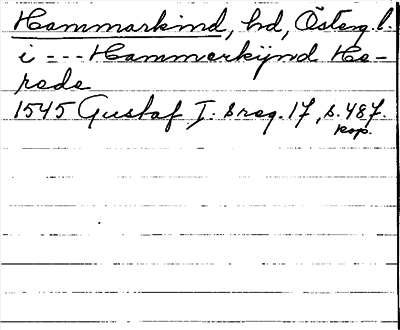 Hammarkind, hd, Österg.l.
i = -- Hammerkijnd He-
rade
1545 Gustaf I: s reg. 17, s. 487.
kop.